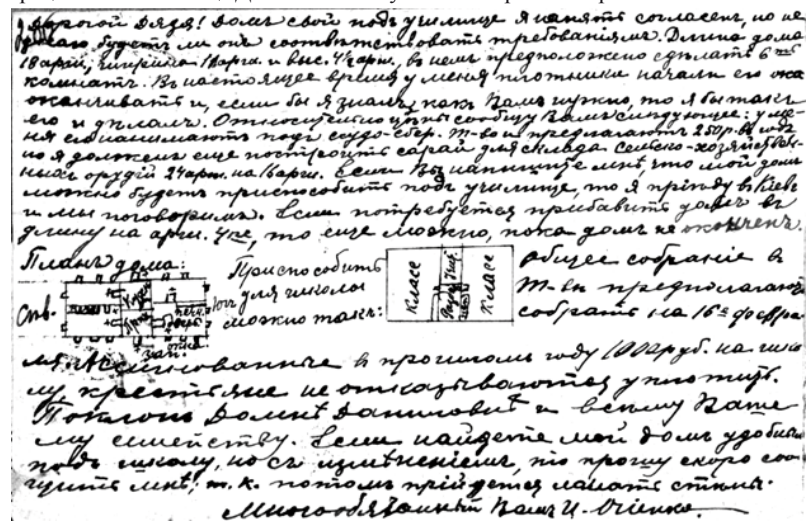 Дорогой Дядя! Домъ свой подъ училище я нанять согласенъ, но не
знаю будетъ ли онъ соотвѣтствовать требованіямъ. Длина дома
18 арш., ширина 16 арш. и выс. 4½ арш., въ немъ предположено сдѣлать 6
комнатъ. Въ настоящее время у меня плотники начали его
оканчивать и, если бы я зналъ, какъ Вамъ нужно, то я бы такъ
его и дѣлалъ. Относительно цѣны сообщу Вамъ слѣдующее: у ме-
ня его нанимаютъ подъ ссудо-сбер. т-во и предлагаютъ 250 р. въ годъ
но я долженъ еще построить сарай для склада сельско-хозяйствен-
ныхъ орудій 24 арш. на 16 арш. Если Вы напишите мнѣ, что мой домъ
можно будетъ приспособить подъ училище, то я пріѣду въ Кіевъ
и мы поговоримъ. Если потребуется прибавить домъ въ
длину на арш. 4, то еще можно, пока домъ не оконченъ.
Планъ дома:
Ств.
Кухня
печь
дверь
окна
Югъ
Приспособить
для школы
можно такъ:
Классъ
Классъ
Общее собраніе в
т-вѣ предполагаютъ
собрать на 16ᵉ февра-
ля. Ассигнованные в прошломъ году 1002 руб. на шко
лу крестьяне не отказываются уплотить.
Поклонъ Домнѣ Даниловнѣ и всему Ваше
му семейству. Если найдете мой домъ удобнымъ
подъ школу, но съ измѣненіемъ, то прошу скоро соо-
щить мнѣ, т. к. потомъ прійдется ламать стѣны.
Многообязанный Вамъ И. Огіенко.